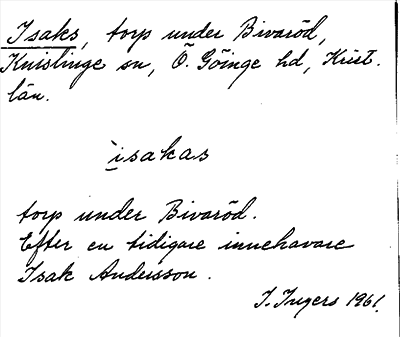 Isaks, torp under Bivaröd,
Knislinge sn, Ö. Göinge hd, Krist.
län.
ìsakas
torp under Bivaröd.
Efter en tidigare innehavare
Isak Andersson.
I. Ingers 1961.